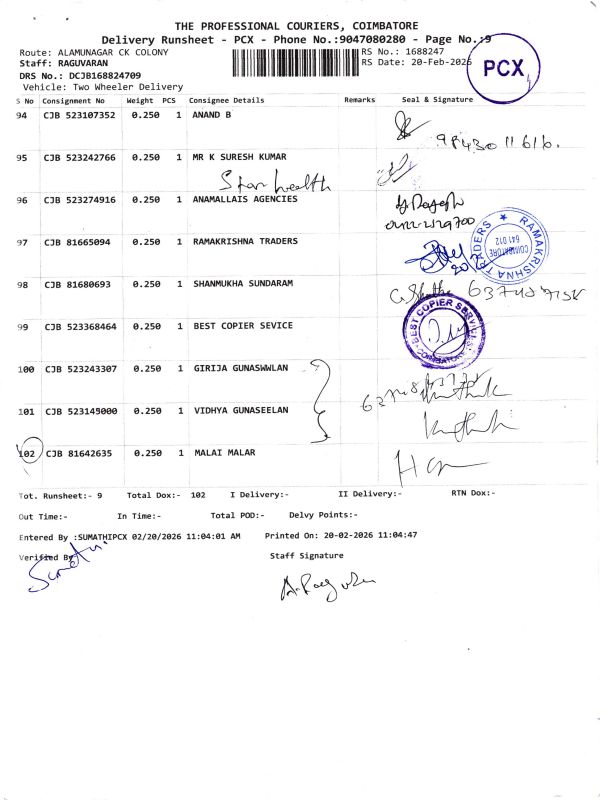 THE PROFESSIONAL COURIERS, COIMBATORE
Delivery Runsheet - PCX - Phone No.:9047080280 - Page No.:9
Route: ALAMUNAGAR CK COLONY RS No.: 1688247
Staff: RAGUVARAN RS Date: 20-Feb-2026
PCX
DRS No.: DCJB168824709
Vehicle: Two Wheeler Delivery
S No Consignment No Weight PCS Consignee Details Remarks Seal & Signature
94 CJB 523107352 0.250 1 ANAND B
95 CJB 523242766 0.250 1 MR K SURESH KUMAR
Star health
96 CJB 523274916 0.250 1 ANAMALLAIS AGENCIES
97 CJB 81665094 0.250 1 RAMAKRISHNA TRADERS
RAMAKRISHNA TRADERS
COIMBATORE
641 012
98 CJB 81680693 0.250 1 SHANMUKHA SUNDARAM
99 CJB 523368464 0.250 1 BEST COPIER SEVICE
BEST COPIER SERVICE
COIMBATORE
100 CJB 523243307 0.250 1 GIRIJA GUNASWWLAN
101 CJB 523145000 0.250 1 VIDHYA GUNASEELAN
102 CJB 81642635 0.250 1 MALAI MALAR
Tot. Runsheet:- 9 Total Dox:- 102 I Delivery:- II Delivery:- RTN Dox:-
Out Time:- In Time:- Total POD:- Delvy Points:-
Entered By :SUMATHIPCX 02/20/2026 11:04:01 AM Printed On: 20-02-2026 11:04:47
Verified By Staff Signature